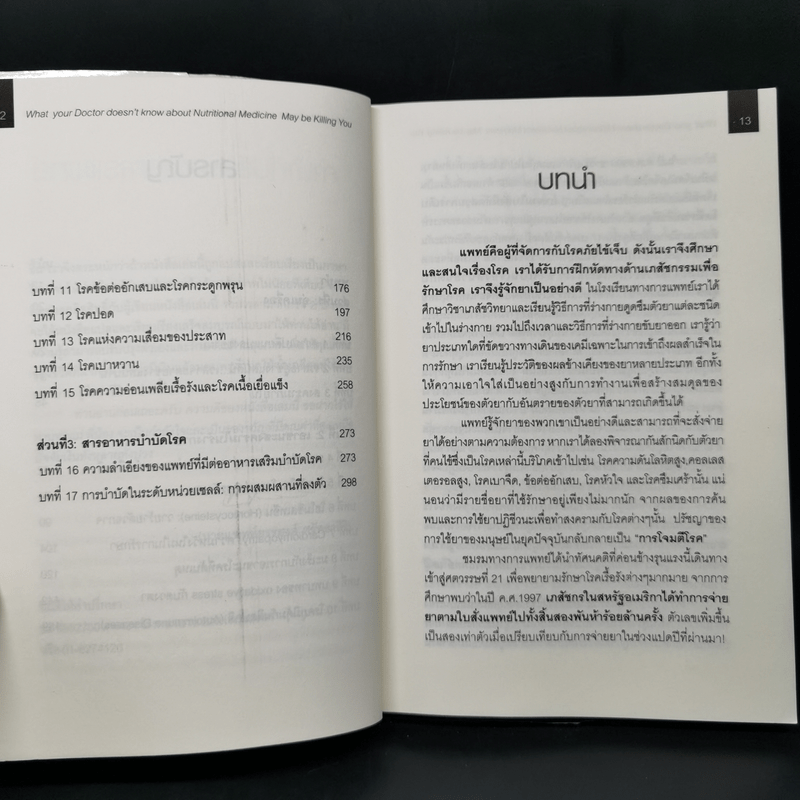 2
What your Doctor doesn't know about Nutritional Medicine May be Killing You
บทที่ 11 โรคข้อต่ออักเสบและโรคกระดูกพรุน 176
บทที่ 12 โรคปอด 197
บทที่ 13 โรคแห่งความเสื่อมของประสาท 216
บทที่ 14 โรคเบาหวาน 235
บทที่ 15 โรคความอ่อนเพลียเรื้อรังและโรคเนื้อเยื่อแข็ง 258
ส่วนที่3: สารอาหารบำบัดโรค 273
บทที่ 16 ความลำเอียงของแพทย์ที่มีต่ออาหารเสริมบำบัดโรค 273
บทที่ 17 การบำบัดในระดับหน่วยเซลล์: การผสมผสานที่ลงตัว 298
13
บทนำ
แพทย์คือผู้ที่จัดการกับโรคภัยไข้เจ็บ ดังนั้นเราจึงศึกษา
และสนใจเรื่องโรค เราได้รับการฝึกหัดทางด้านเภสัชกรรมเพื่อ
รักษาโรค เราจึงรู้จักยาเป็นอย่างดี ในโรงเรียนทางการแพทย์เราได้
ศึกษาวิชาเภสัชวิทยาและเรียนรู้วิธีการที่ร่างกายดูดซึมตัวยาแต่ละชนิด
เข้าไปในร่างกาย รวมไปถึงเวลาและวิธีการที่ร่างกายขับยาออก เรารู้ว่า
ยาประเภทใดที่ขัดขวางทางเดินของเคมีเฉพาะในการเข้าถึงผลสำเร็จใน
การรักษา เราเรียนรู้ประวัติของผลข้างเคียงของยาหลายประเภท อีกทั้ง
ให้ความเอาใจใส่เป็นอย่างสูงกับการทำงานเพื่อสร้างสมดุลของ
ประโยชน์ของตัวยากับอันตรายของตัวยาที่สามารถเกิดขึ้นได้
แพทย์รู้จักยาของพวกเขาเป็นอย่างดีและสามารถที่จะสั่งจ่าย
ยาได้อย่างตามความต้องการ หากเราได้ลองพิจารณากันสักนิดกับตัวยา
ที่คนไข้ซึ่งเป็นโรคเหล่านี้บริโภคเข้าไปเช่น โรคความดันโลหิตสูง,คอลเลส
เตอรอลสูง, โรคเบาจืด, ข้อต่ออักเสบ, โรคหัวใจ และโรคซึมเศร้านั้น แน่
นอนว่ามีรายชื่อยาที่ใช้รักษาอยู่เพียงไม่มากนัก จากผลของการค้น
พบและการใช้ยาปฏิชีวนะเพื่อทำสงครามกับโรคต่างๆนั้น ปรัชญาของ
การใช้ยาของมนุษย์ในยุคปัจจุบันกลับกลายเป็น "การโจมตีโรค"
ชมรมทางการแพทย์ได้นำทัศนคติที่ค่อนข้างรุนแรงนี้เดินทาง
เข้าสู่ศตวรรษที่ 21 เพื่อพยายามรักษาโรคเรื้อรังต่างๆมากมาย จากการ
ศึกษาพบว่าในปี ค.ศ.1997 เภสัชกรในสหรัฐอเมริกาได้ทำการจ่าย
ยาตามใบสั่งแพทย์ไปทั้งสิ้นสองพันห้าร้อยล้านครั้ง ตัวเลขเพิ่มขึ้น
เป็นสองเท่าตัวเมื่อเปรียบเทียบกับการจ่ายยาในช่วงแปดปีที่ผ่านมา!